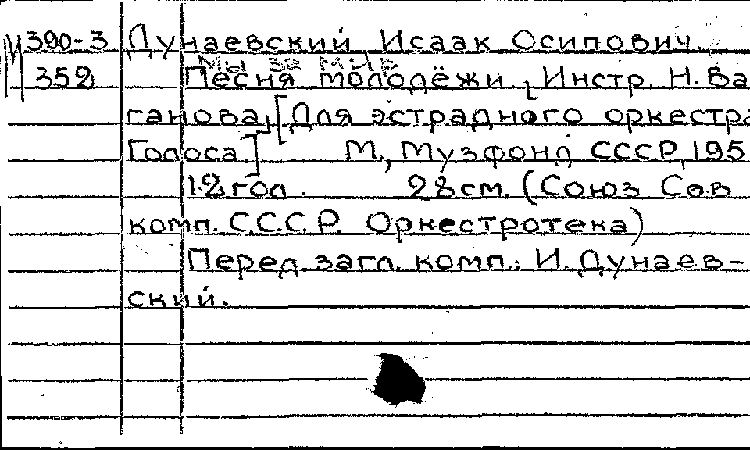 М 390-3 Дунаевский Исаак Осипович.
Мы за мир
352 Песня молодёжи, Инстр. Н. Ва
ганова, [Для эстрадного оркестра
Голоса.] М., Музфонд СССР, 195
12 гол. 28 см. (Союз Сов
комп. С.С.С.Р. Оркестротека)
Перед загл. комп.: И. Дунаев-
ский.